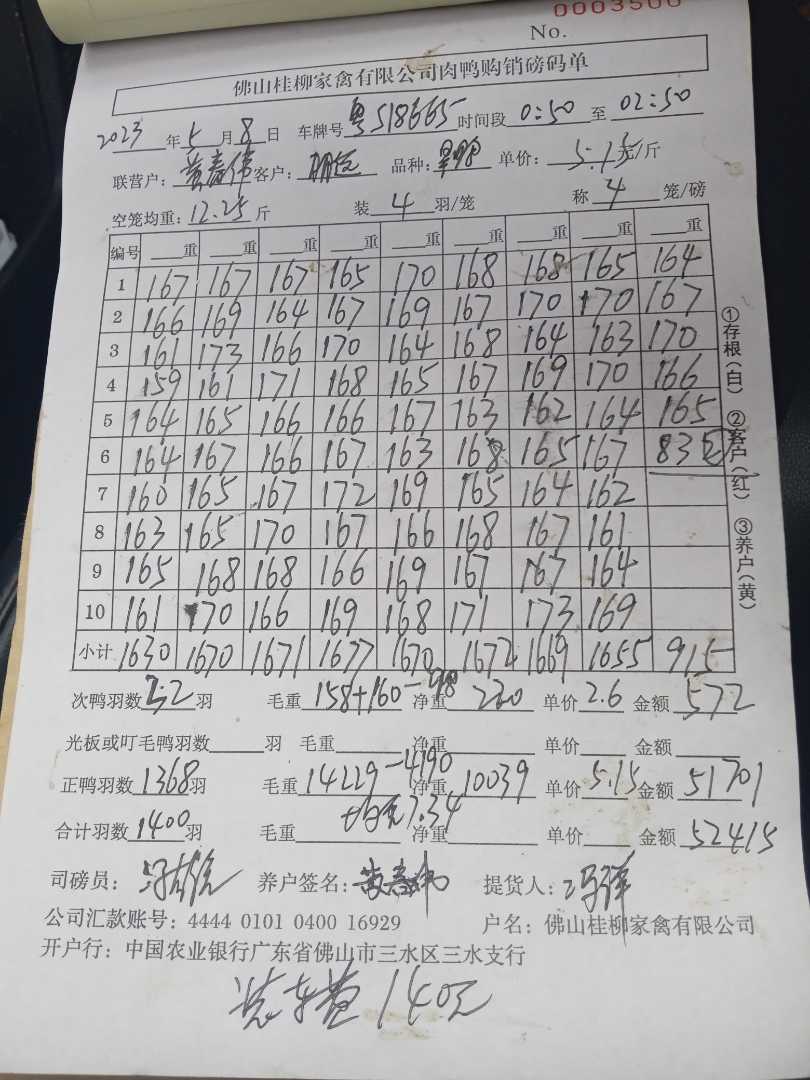 0003500
No.
佛山桂柳家禽有限公司肉鸭购销磅码单
2023年5月8日 车牌号 粤S18665 时间段 0:50 至 02:50
联营户: 黄嘉伟 客户: 品种: 单价: 5.15元/斤
空笼均重: 12.25斤 装 4 羽/笼 称 4 笼/磅
编号 重 重 重 重 重 重 重 重 重
1 167 167 167 165 170 168 168 165 164
2 166 169 164 167 169 167 170 170 167
3 161 173 166 170 164 168 164 163 170
4 159 161 171 168 165 167 169 170 166
5 164 165 166 166 167 163 162 164 165
6 164 167 166 167 163 168 165 167 83
7 160 165 167 172 169 165 164 162
8 163 165 170 167 166 168 167 161
9 165 168 168 166 169 167 167 164
10 161 170 166 169 168 171 173 169
小计 1630 1670 1671 1677 1670 1672 1669 1655 915
①存根(白) ②客户(红) ③养户(黄)
次鸭羽数 32 羽 毛重 158+160-98 净重 220 单价 2.6 金额 572
光板或叮毛鸭羽数 羽 毛重 净重 单价 金额
正鸭羽数 1368 羽 毛重 14229-4190 净重 10039 单价 5.15 金额 51701
合计羽数 1400 羽 毛重 均重7.34 净重 单价 金额 52415
司磅员: 养户签名: 黄嘉伟 提货人: 冯锋
公司汇款账号: 4444 0101 0400 16929 户名: 佛山桂柳家禽有限公司
开户行: 中国农业银行广东省佛山市三水区三水支行
装车费140元